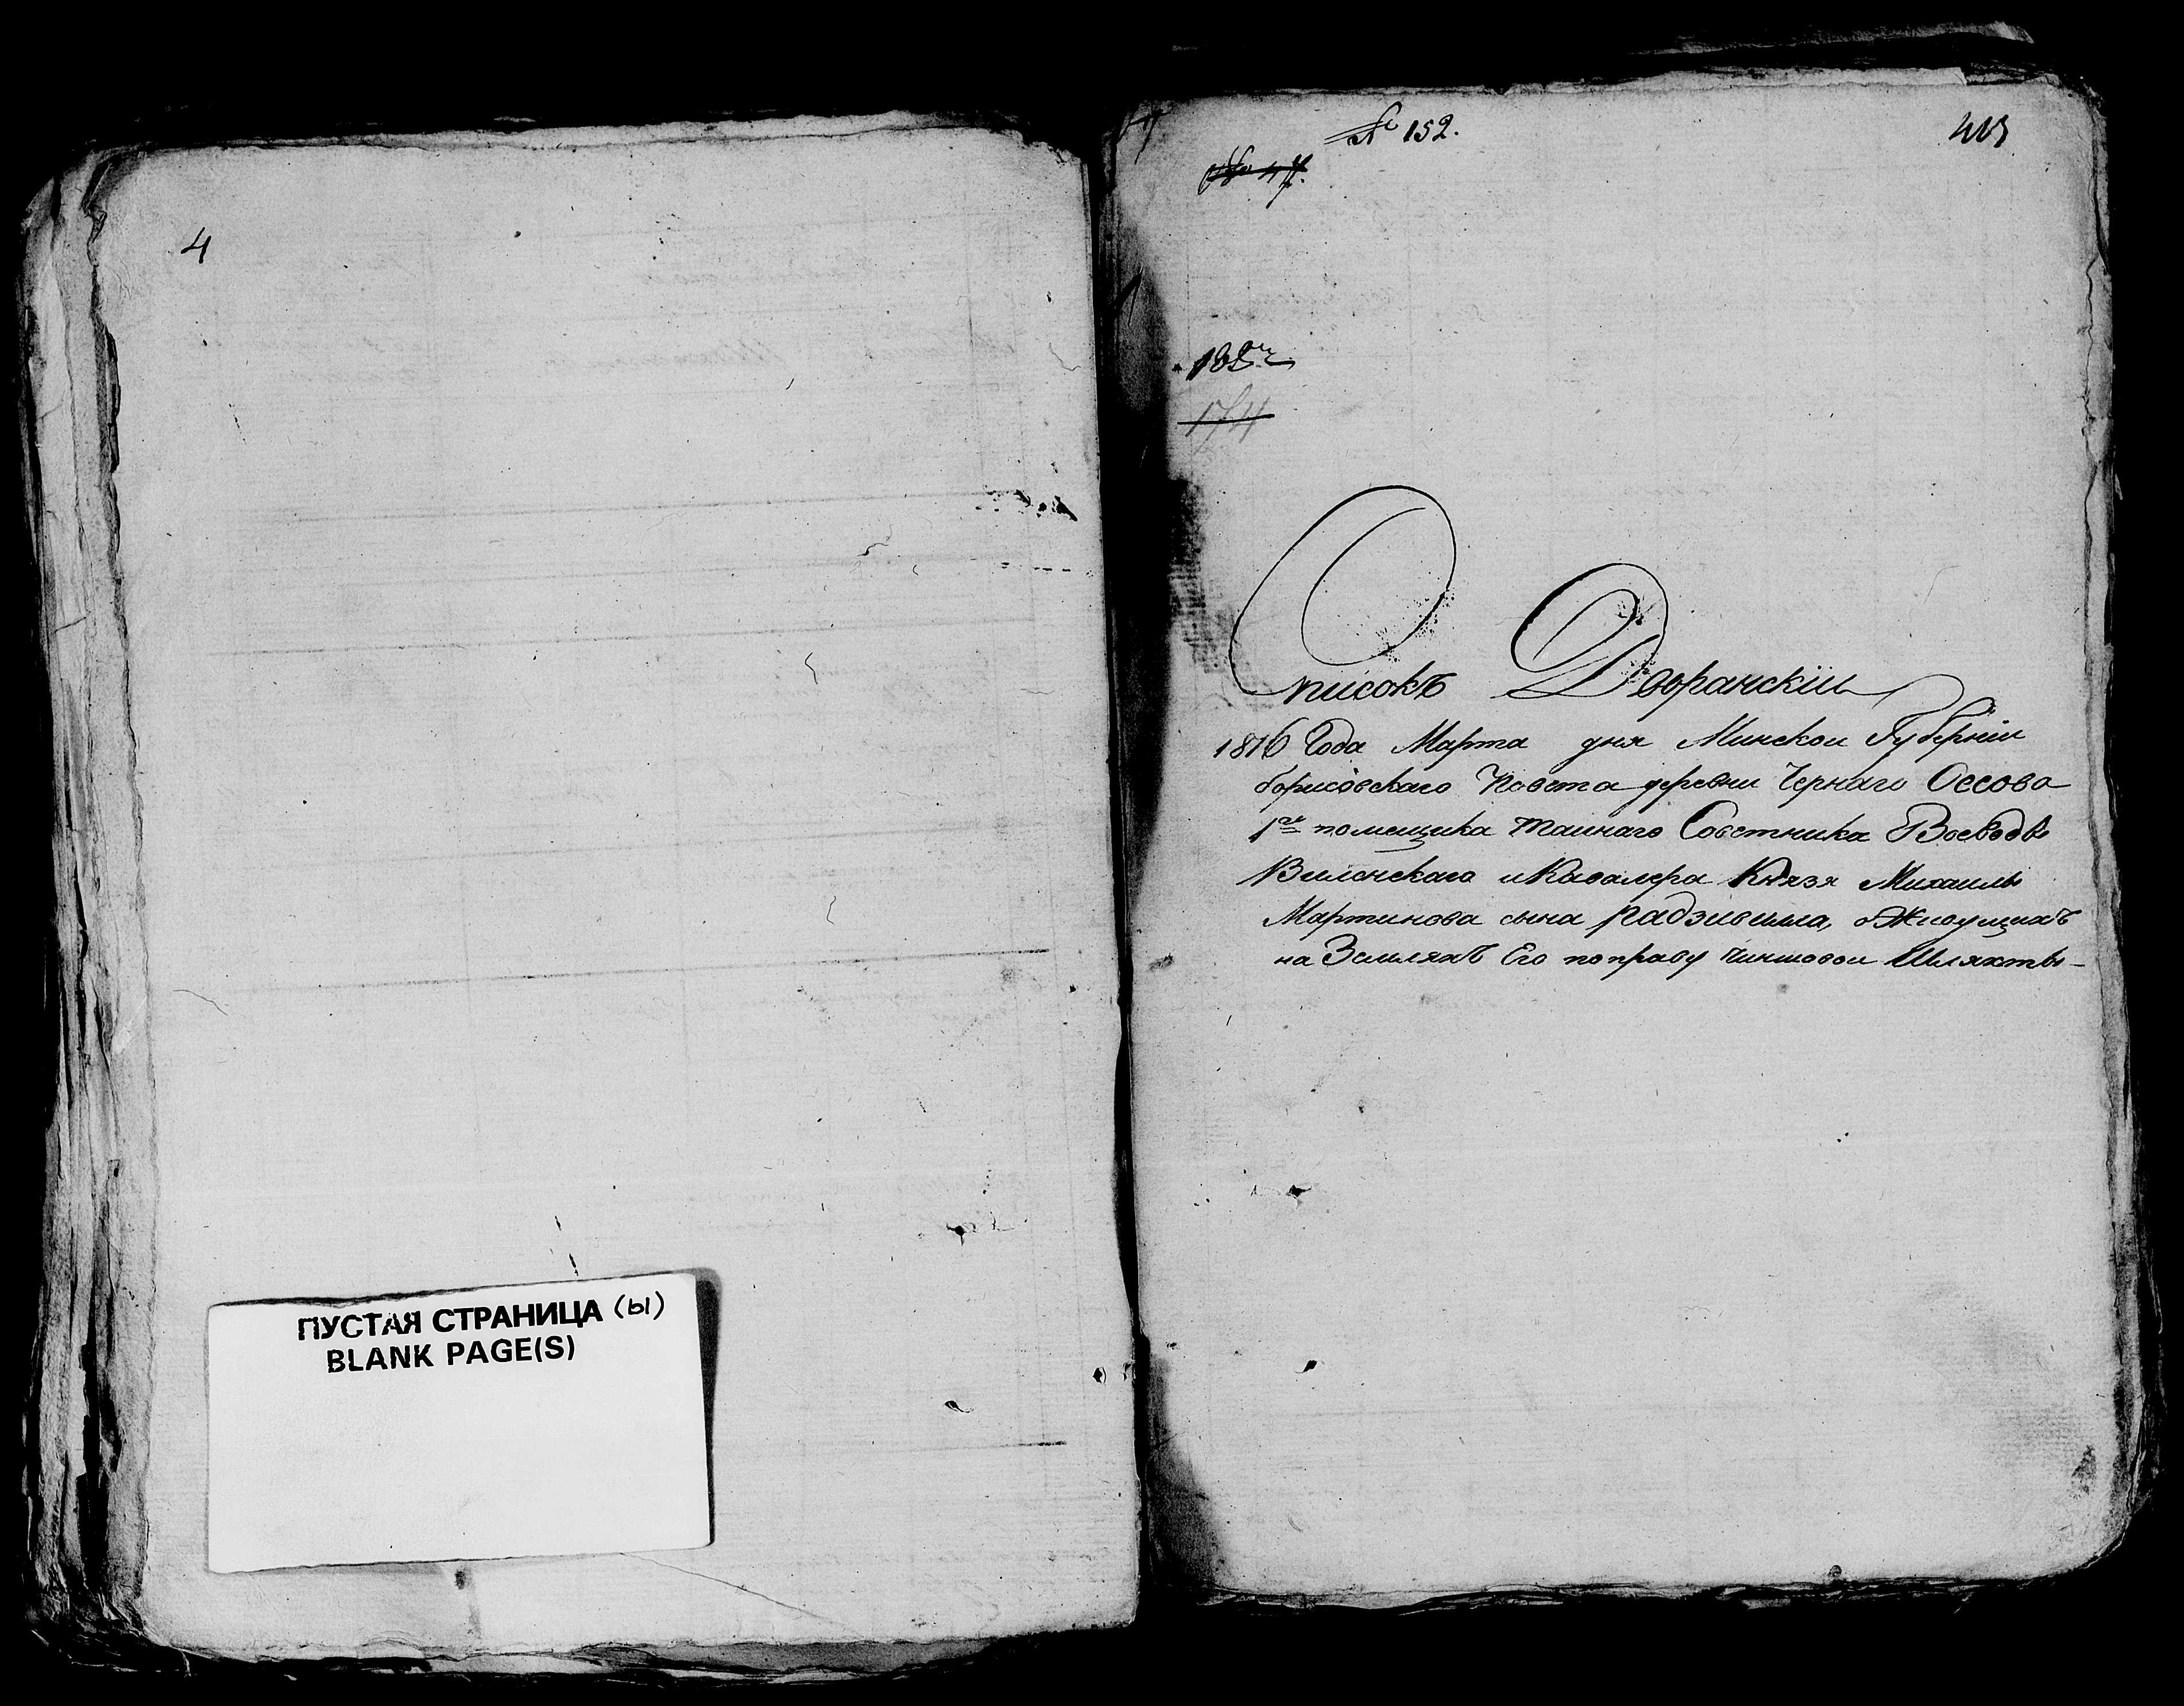 4
ПУСТАЯ СТРАНИЦА (ы)
BLANK PAGE(S)
№ 152.
413
174
Списокъ Дворанскіи
1816 Года Марта дня Минскои Губерніи
борисовскаго Повета деревни Чернаго Оссова
1го помещика таинаго Советника Воеводы
Виленскаго и Кавалера Князя Михаилы
Мартинова сына Радзивилла, о Живущихъ
на Земляхъ Его по праву чиншовои Шляхты